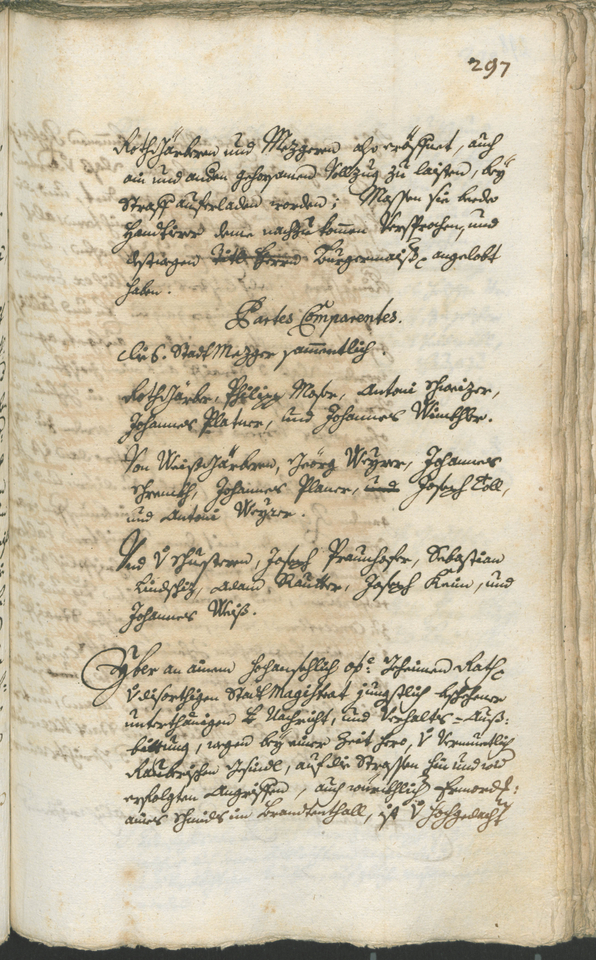 297
Rothgärberen und Mezgeren also eröffnet, auch
ain und anden gehorsamen Vollzug zu laisten, bey
Straff auferladen worden; Massen sie beede
Handtirer deme nachzukommen versprochen, und
Titl Herrn Burgermaistr angelobt
haben.
Partes Comparentes.
Die S. Statt Mezger sammentlich.
Rothgärber, Philipp Moser, Antoni Schweizer,
Johannes Platner, und Johannes
Von Weißgärbern, Geörg Meyrer, Johannes
Johannes Planer, und Joseph Toll,
und Antoni Meyrer.
Und v Schustern, Joseph Praunhofer, Sebastian
Adam Rautter, Joseph Keim, und
Johannes Weiß.
Yber an ainem Hochansehlich Geheimen Rath
v diserthigen Statt Magistrat jüngstlich beschehene
unterthänigen Nachricht, und Verhalts-Auß-
bittung, wegen bey einer Zeit hero, v vermuetlich
Rauberischen Gesündl, auf die Strassen hin und
erfolgten Angriffen, auch würckhlich Ermord-
aines Schmids im Brandtenthall, ist v Hochgedacht